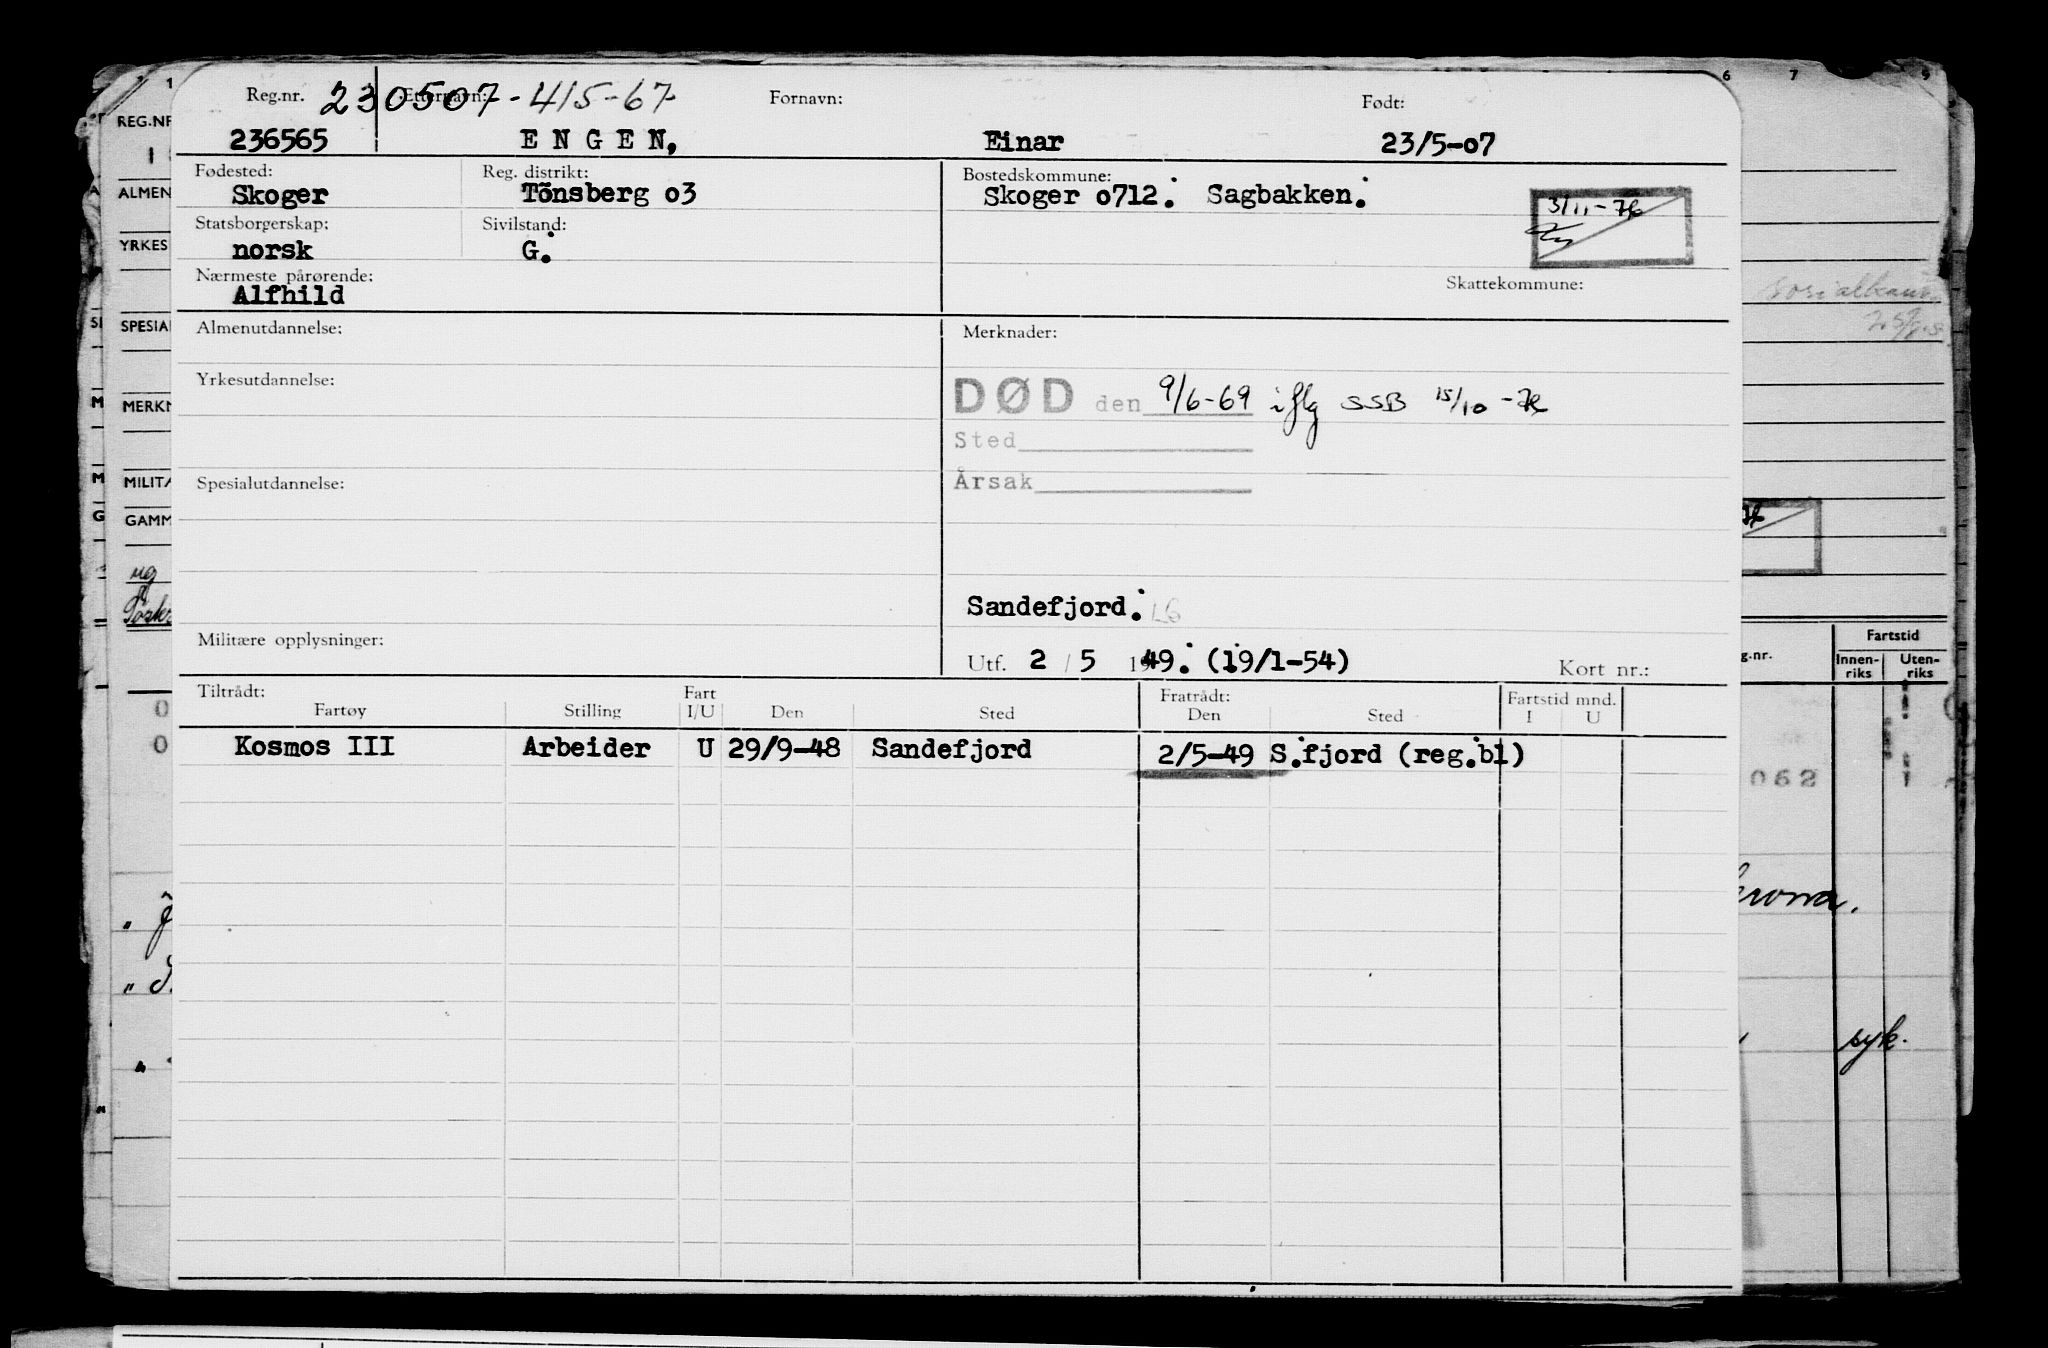 Reg.nr. Etternavn: Fornavn: Født:
230507-415-67
236565 E N G E N, Einar 23/5-07
Fødested: Reg. distrikt: Bostedskommune:
Skoger Tönsberg o3 Skoger o712. Sagbakken.
Statsborgerskap: Sivilstand:
norsk G.
Nærmeste pårørende: Skattekommune:
Alfhild
Almenutdannelse: Merknader:
Yrkesutdannelse:
DØD den 9/6-69 iflg SSB 15/10-
Sted
Årsak
Spesialutdannelse:
Sandefjord. LG
Militære opplysninger:
Utf. 2 / 5 1949. (19/1-54) Kort nr.:
Tiltrådt: Fart Fratrådt: Fartstid mnd.
Fartøy Stilling I/U Den Sted Den Sted I U
Kosmos III Arbeider U 29/9-48 Sandefjord 2/5-49 S.fjord (reg.bl)
1 6 7 9
REG.NR
1
ALMEN
YRKES
SPESIA
MERKN
MILITÆ
GAMM
Fartstid
g.nr. Innen- Uten-
riks riks
062
syk.